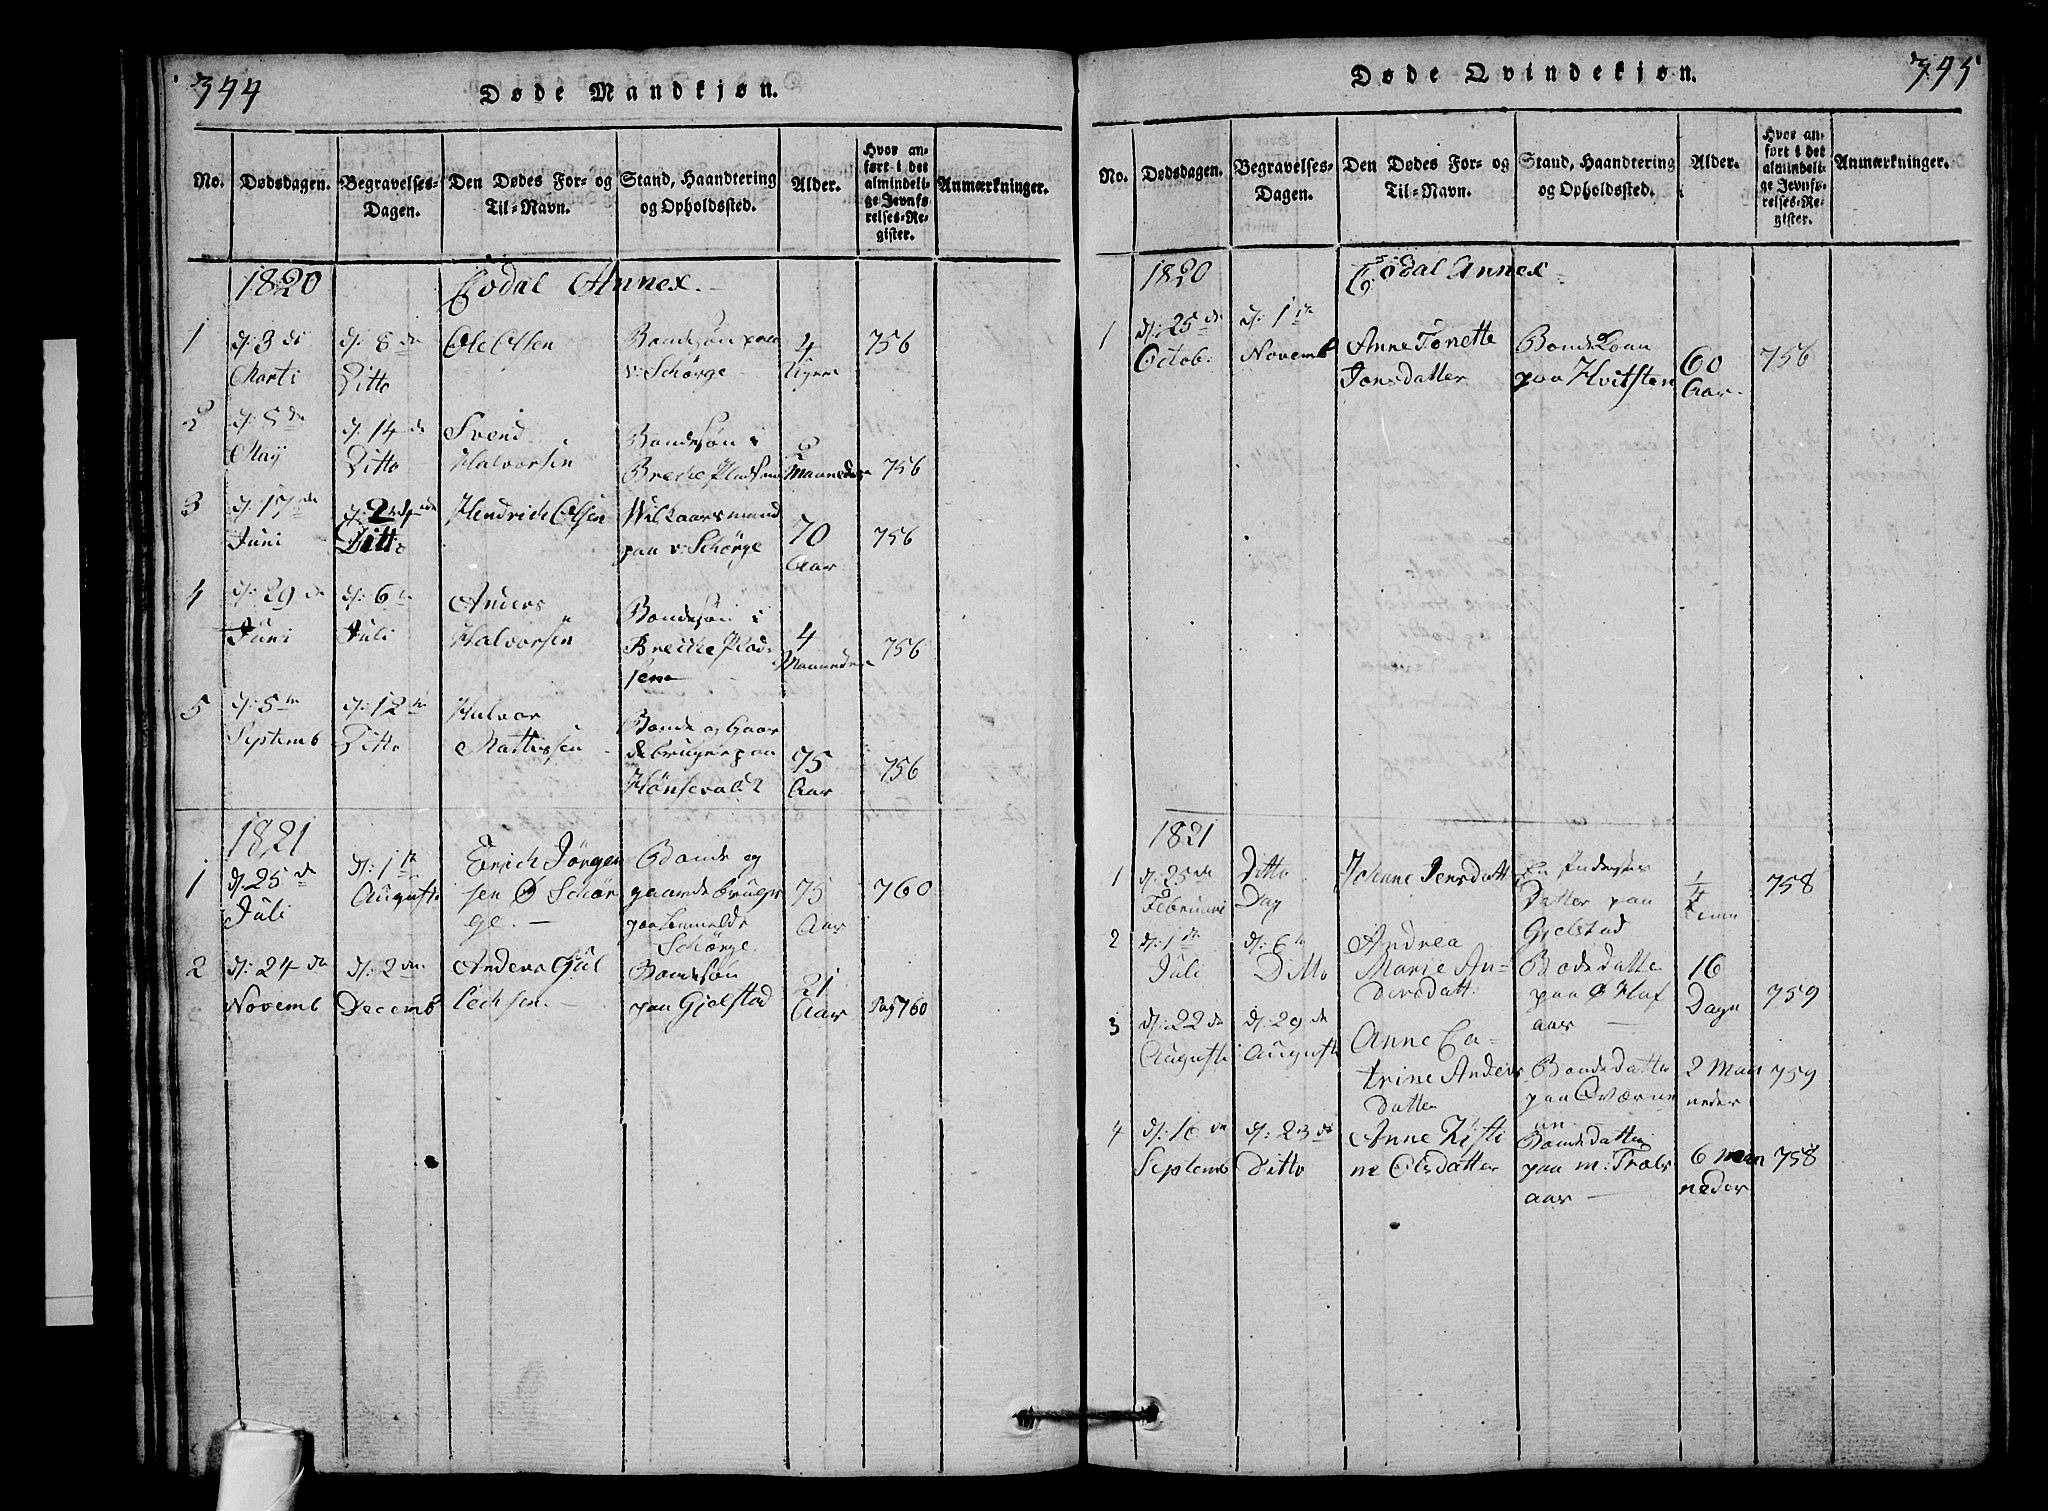 344
Døde Mandkjøn.
No.
Dødsdagen.
Begravelses-
Dagen.
Den Dødes For- og
Til-Navn.
Stand, Haandtering
og Opholdssted.
Alder.
Hvor an-
ført i det
almindeli-
ge Jevnfø-
relses-Re-
gister.
Anmærkninger.
1820
Annex.
1
d: 3 de
Marti
d: 8 de
Ditto
Ole Olsen
Bondesøn paa
v: Schørge
4
Uger
756
2
d: 8 de
Maij
d: 14 de
Ditto
Svend
Halvorsen
Bondesøn i
Brecke Pladsen
2
Maaneder
756
3
d: 17 de
Juni
Ditto
Hendrich Olsen
Wilkaarsmand
paa v: Schørge
70
Aar
756
4
d: 29 de
Juni
d: 6 te
Juli
Anders
Halvorsen
Bondesøn i
Brecke Plad-
sen
4
Maaneder
756
5
d: 5 te
Septemb
d: 12 te
Ditto
Halvor
Mattissen
Bonde og Gaar
debruger paa
75
Aar
756
1821
1
d: 25 de
Juli
d: 1 te
Augusti
Erich Jörgen
sen Ø Schør
ge.
Bonde og
gaardebruger
Schørge
75
Aar
760
2
d: 24 de
Novemb
d: 2 den
Decemb
Anders Gul
lechsen.
Bondesøn
paa Gjelstad
21
Aar
Pag 760
345
Døde Qvindekjøn.
No.
Dødsdagen.
Begravelses-
Dagen.
Den Dødes For- og
Til-Navn.
Stand, Haandtering
og Opholdssted.
Alder.
Hvor an-
ført i det
almindeli-
ge Jevnfø-
relses-Re-
gister.
Anmærkninger.
1820
Annex
1
d: 25 de
Octob:
d: 1 te
Novemb
Anne Tonette
Jonsdatter
Bonde Kone
paa Hvitsten
60
Aar
756
1821
1
d: 25 de
Februari
Ditto
Dag
Johnne Jensdatt
Datter paa
Gjelstad
1/4
758
2
d: 1 te
Juli
d: 6 te
Ditto
Andrea
Marie An-
dersdatt:
Bodedatter
paa Ø
aar
16
Dage
759
3
d: 22 de
Augusti
d: 29 de
Augusti
Anne Ca-
trine Anders
datter
Bondedatter
paa
2 Maa
neder
759
4
d: 16 de
Septemb
d: 23 de
Ditto
Anne Kisti
ne Olsdatter
Bondedatter
paa m: Træls
aar
6 maa
neder
758